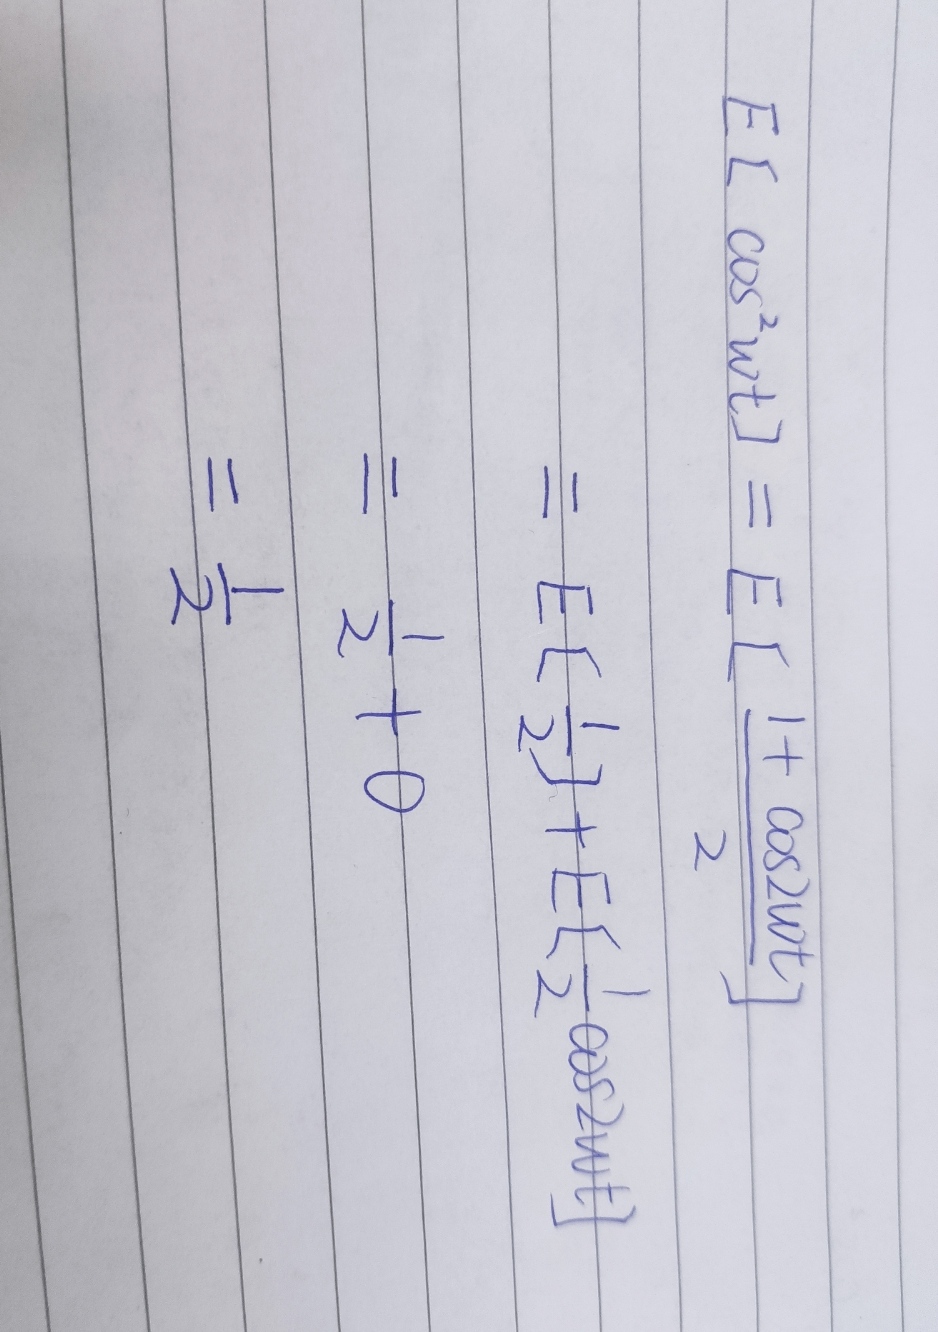 E[cos²wt] = E[(1+cos2wt)/2]
= E[1/2]+E[1/2 cos2wt]
= 1/2 + 0
= 1/2